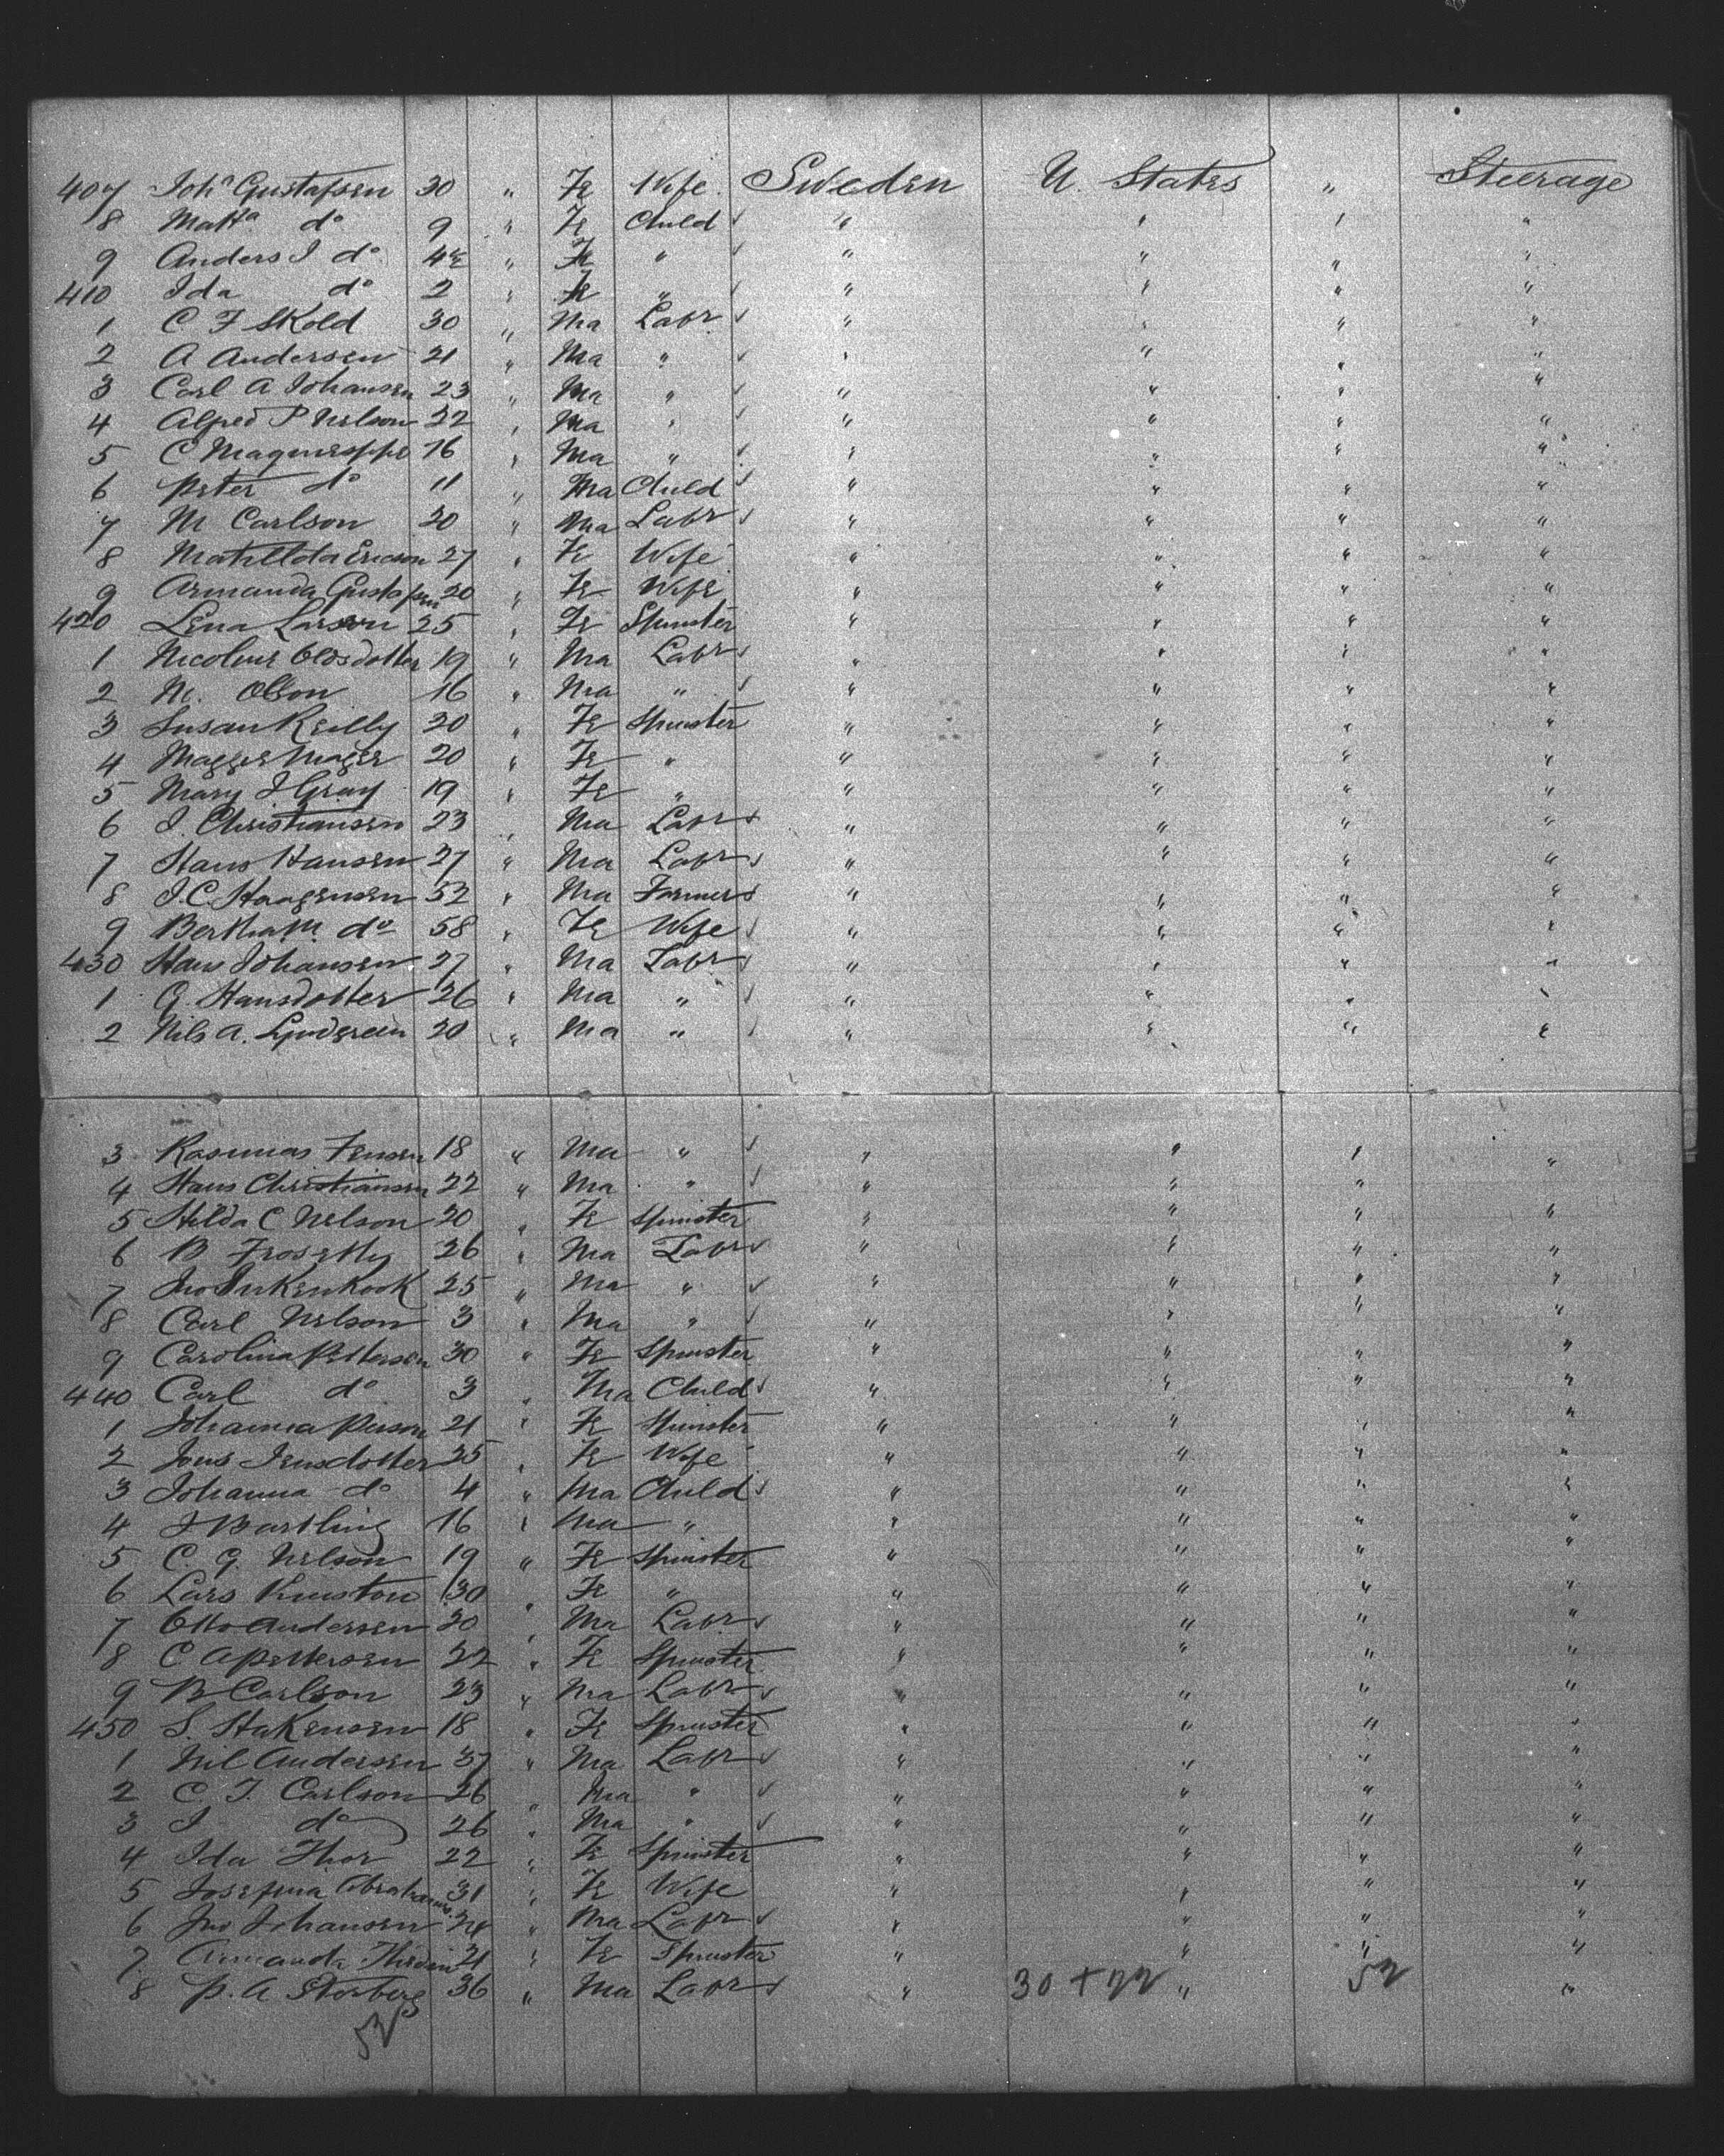 407 Joha Gustafsen 30 " Fe Wife Sweden U. States " Steerage
8 Matta do 9 " Fe Child ✓ " " " "
9 Anders J do 4 " Fe " ✓ " " " "
410 Ida do 2 " Fe " ✓ " " " "
1 C F Skold 30 " Ma Labr ✓ " " " "
2 A Andersen 21 " Ma " ✓ " " " "
3 Carl A Johansen 23 " Ma " ✓ " " " "
4 Alfred P Nelson 22 " Ma " ✓ " " " "
5 C 16 " Ma " ✓ " " " "
6 Peter do 11 " Ma Child ✓ " " " "
7 M Carlson 20 " Ma Labr ✓ " " " "
8 Matillda Ericson 27 " Fe Wife " " " "
9 Armanda Gustafsen 20 " Fe Wife " " " "
420 Lena Larson 25 " Fe Spinster " " " "
1 Nicoline Olosdotter 19 " Ma Labr ✓ " " " "
2 M. Olson 16 " Ma " ✓ " " " "
3 Susan Reilly 20 " Fe Spinster " " " "
4 Magger 20 " Fe " " " " "
5 Mary J Gray 19 " Fe " " " " "
6 J. Christiansen 23 " Ma Labr ✓ " " " "
7 Hans Hansen 27 " Ma Labr ✓ " " " "
8 J. C. Haagensen 52 " Ma Farmer ✓ " " " "
9 Bertha M. do 58 " Fe Wife " " " "
430 Hans Johansen 27 " Ma Labr ✓ " " " "
1 G. Hansdotter 26 " Ma " ✓ " " " "
2 Nils A. 20 " Ma " ✓ " " " "
3 Rasmus Jensen 18 " Ma " ✓ " " " "
4 Hans Christiansen 22 " Ma " ✓ " " " "
5 Hilda C Nelson 20 " Fe Spinster " " " "
6 B 26 " Ma Labr ✓ " " " "
7 Jno 25 " Ma " ✓ " " " "
8 Carl Nelson 3 " Ma " ✓ " " " "
9 Carolina Pettersen 30 " Fe Spinster " " " "
440 Carl do 3 " Ma Child ✓ " " " "
1 Johanna 21 " Fe Spinster " " " "
2 Jons Jensdotter 25 " Fe Wife " " " "
3 Johanna do 4 " Ma Child ✓ " " " "
4 J Bartling 16 " Ma " " " " "
5 C. G. Nelson 19 " Fe Spinster " " " "
6 Lars 30 " Fe " " " " "
7 Otto Andersen 20 " Ma Labr ✓ " " " "
8 C A Pettersen 22 " Fe Spinster " " " "
9 B Carlson 23 " Ma Labr ✓ " " " "
450 S. Hakensen 18 " Fe Spinster " " " "
1 Nil Andersen 37 " Ma Labr ✓ " " " "
2 C. J. Carlson 26 " Ma " ✓ " " " "
3 J do 26 " Ma " ✓ " " " "
4 Ida Thor 22 " Fe Spinster " " " "
5 Josefina Abrahams. 31 " Fe Wife " " " "
6 Jno Johansen 24 " Ma Labr ✓ " " " "
7 Armanda 21 " Fe Spinster " " " "
8 P. A Storberg 36 " Ma Labr ✓ " 30 + 22 " 52 "
52